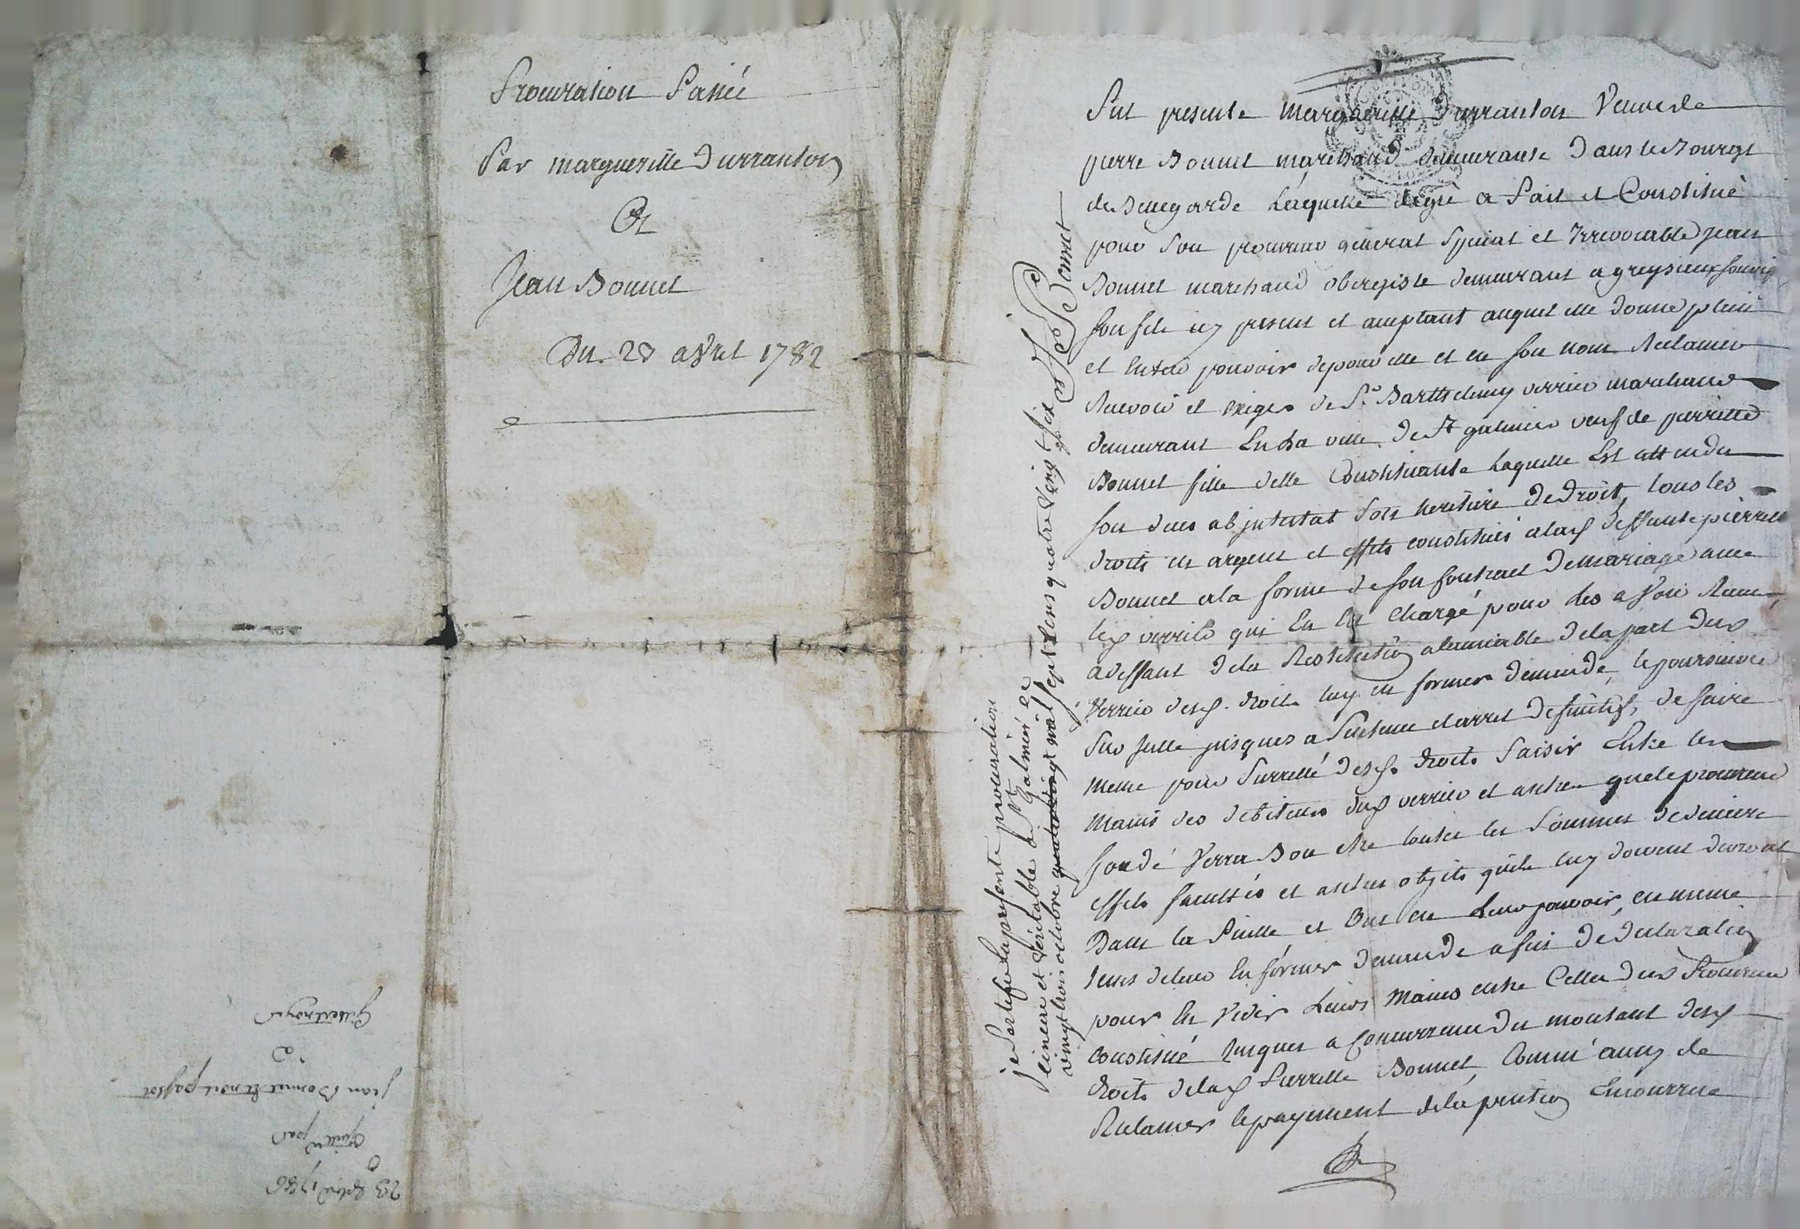 Procuration Passée
Par margueritte Durranton
Et
Jean Bonnet
Du 28 avril 1782
Fut presente Margueritte Durranton Veuve de
pierre Bonnet marchand demeurante Dans le Bourgt
de Bellegarde Laquelle degré a Fait et Constitué
pour son procureur general special et Irrevocable jean
Bonnet marchand obergiste demeurant a
son fils icy present et acceptant auquel elle donne plein
et Entier pouvoir de pour elle et en son nom Reclamer
Recevoir et exiger de Sr. Barthelemy verrier marchand
demeurant En La ville de St galmier veuf de pierrette
Bonnet fille delle Constituante Laquelle Est attendu
son deces abjntestat son heretiere de Droit, tous les
droits en argent et effets constitués a lad. deffunte pierrette
Bonnet a la forme de son Contract De mariage avec
led. verrier qui En Est Chargé pour les avoir Recus,
a deffaut de la Restitution alamiable de la part dud.
Verrier desd. droits luy en former demande, le poursuivre
sur Icelle jusques a Sentence et arret definitif, de faire
meme pour Surretté desd. droits Saisir Entre les
mains des debiteurs dud. verrier et autres que le procureur
fondé Verra Bon etre toutes les Sommes de deniers
effets facultés et autres objets quils luy doivent devront
Dans la Suitte et Ont en Leur pouvoir, en meme
tems deleur En former demande a fins de declaration
pour En Vider Leurs Mains entre Celles dud. Procureur
constitué jusques a Concurrence du montant desd.
droits delad. Pierrette Bonnet, Comm'aussy de
Reclamer le payement de la pention Encourrue
je Certifie la presente procuration
Sincere et Veritable a St Galmier ce
vingt trois octobre mil Sept Cens quatre Vingt Six
J Bonnet
23 1786
par
jean Bonnet
a